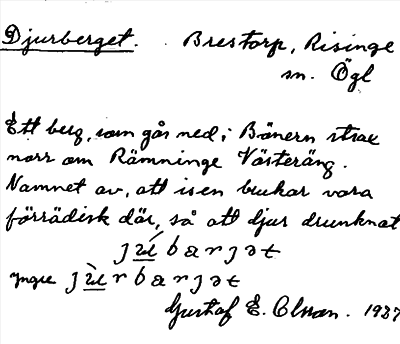 Djurberget. Brestorp, Risinge
sn. Ögl
Ett berg, som går ned i Bönern strax
norr om Rämninge Västeräng.
Namnet av, att isen brukar vara
förrädisk där, så att djur drunknat
Yngre
Gustaf E. Olsson. 1937